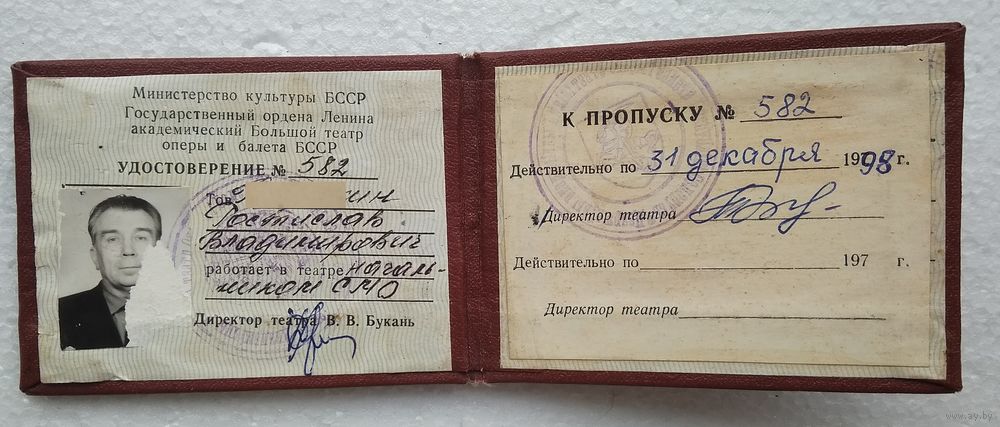 Министерство культуры БССР
Государственный ордена Ленина
академический Большой театр
оперы и балета БССР
УДОСТОВЕРЕНИЕ № 582
Тов.
Ростислав
Владимирович
работает в театре началь-
ником СМО
Директор театра В. В. Букань
К ПРОПУСКУ № 582
Действительно по 31 декабря 1998 г.
Директор театра
Действительно по 197 г.
Директор театра
www.ay.by